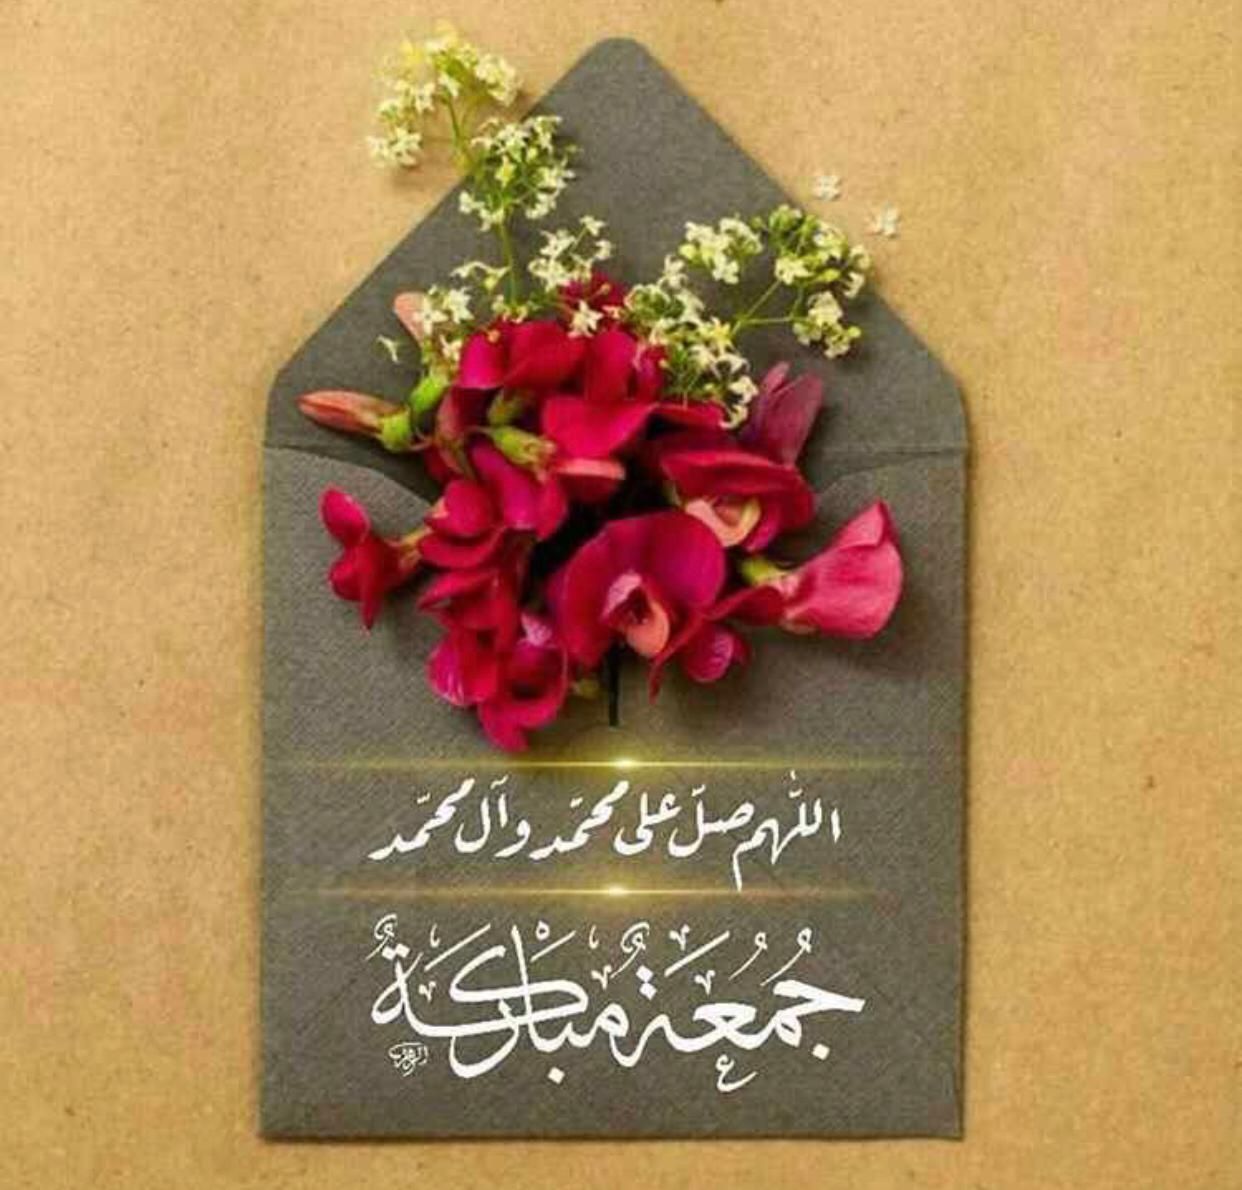 اللّهم صلّ على محمّد وآل محمّد
جُمُعَةٌ مُبَارَكَةٌ